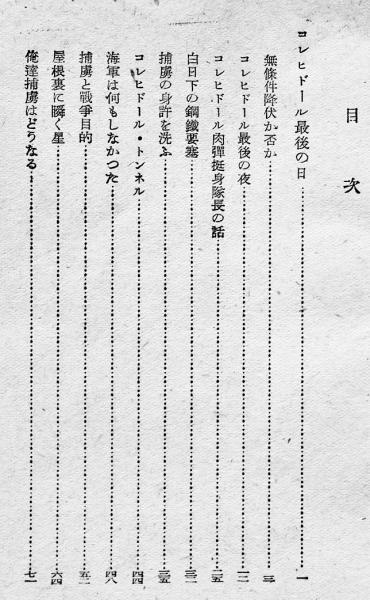 目次
コレヒドール最後の日……一
無條件降伏か否か……三
コレヒドール最後の夜……一二
コレヒドール肉彈挺身隊長の話……二五
白日下の鋼鐵要塞……三二
捕虜の身許を洗ふ……三五
コレヒドール・トンネル……四四
海軍は何もしなかつた……四八
捕虜と戰爭目的……五二
屋根裏に瞬く星……六四
俺達捕虜はどうなる……七一